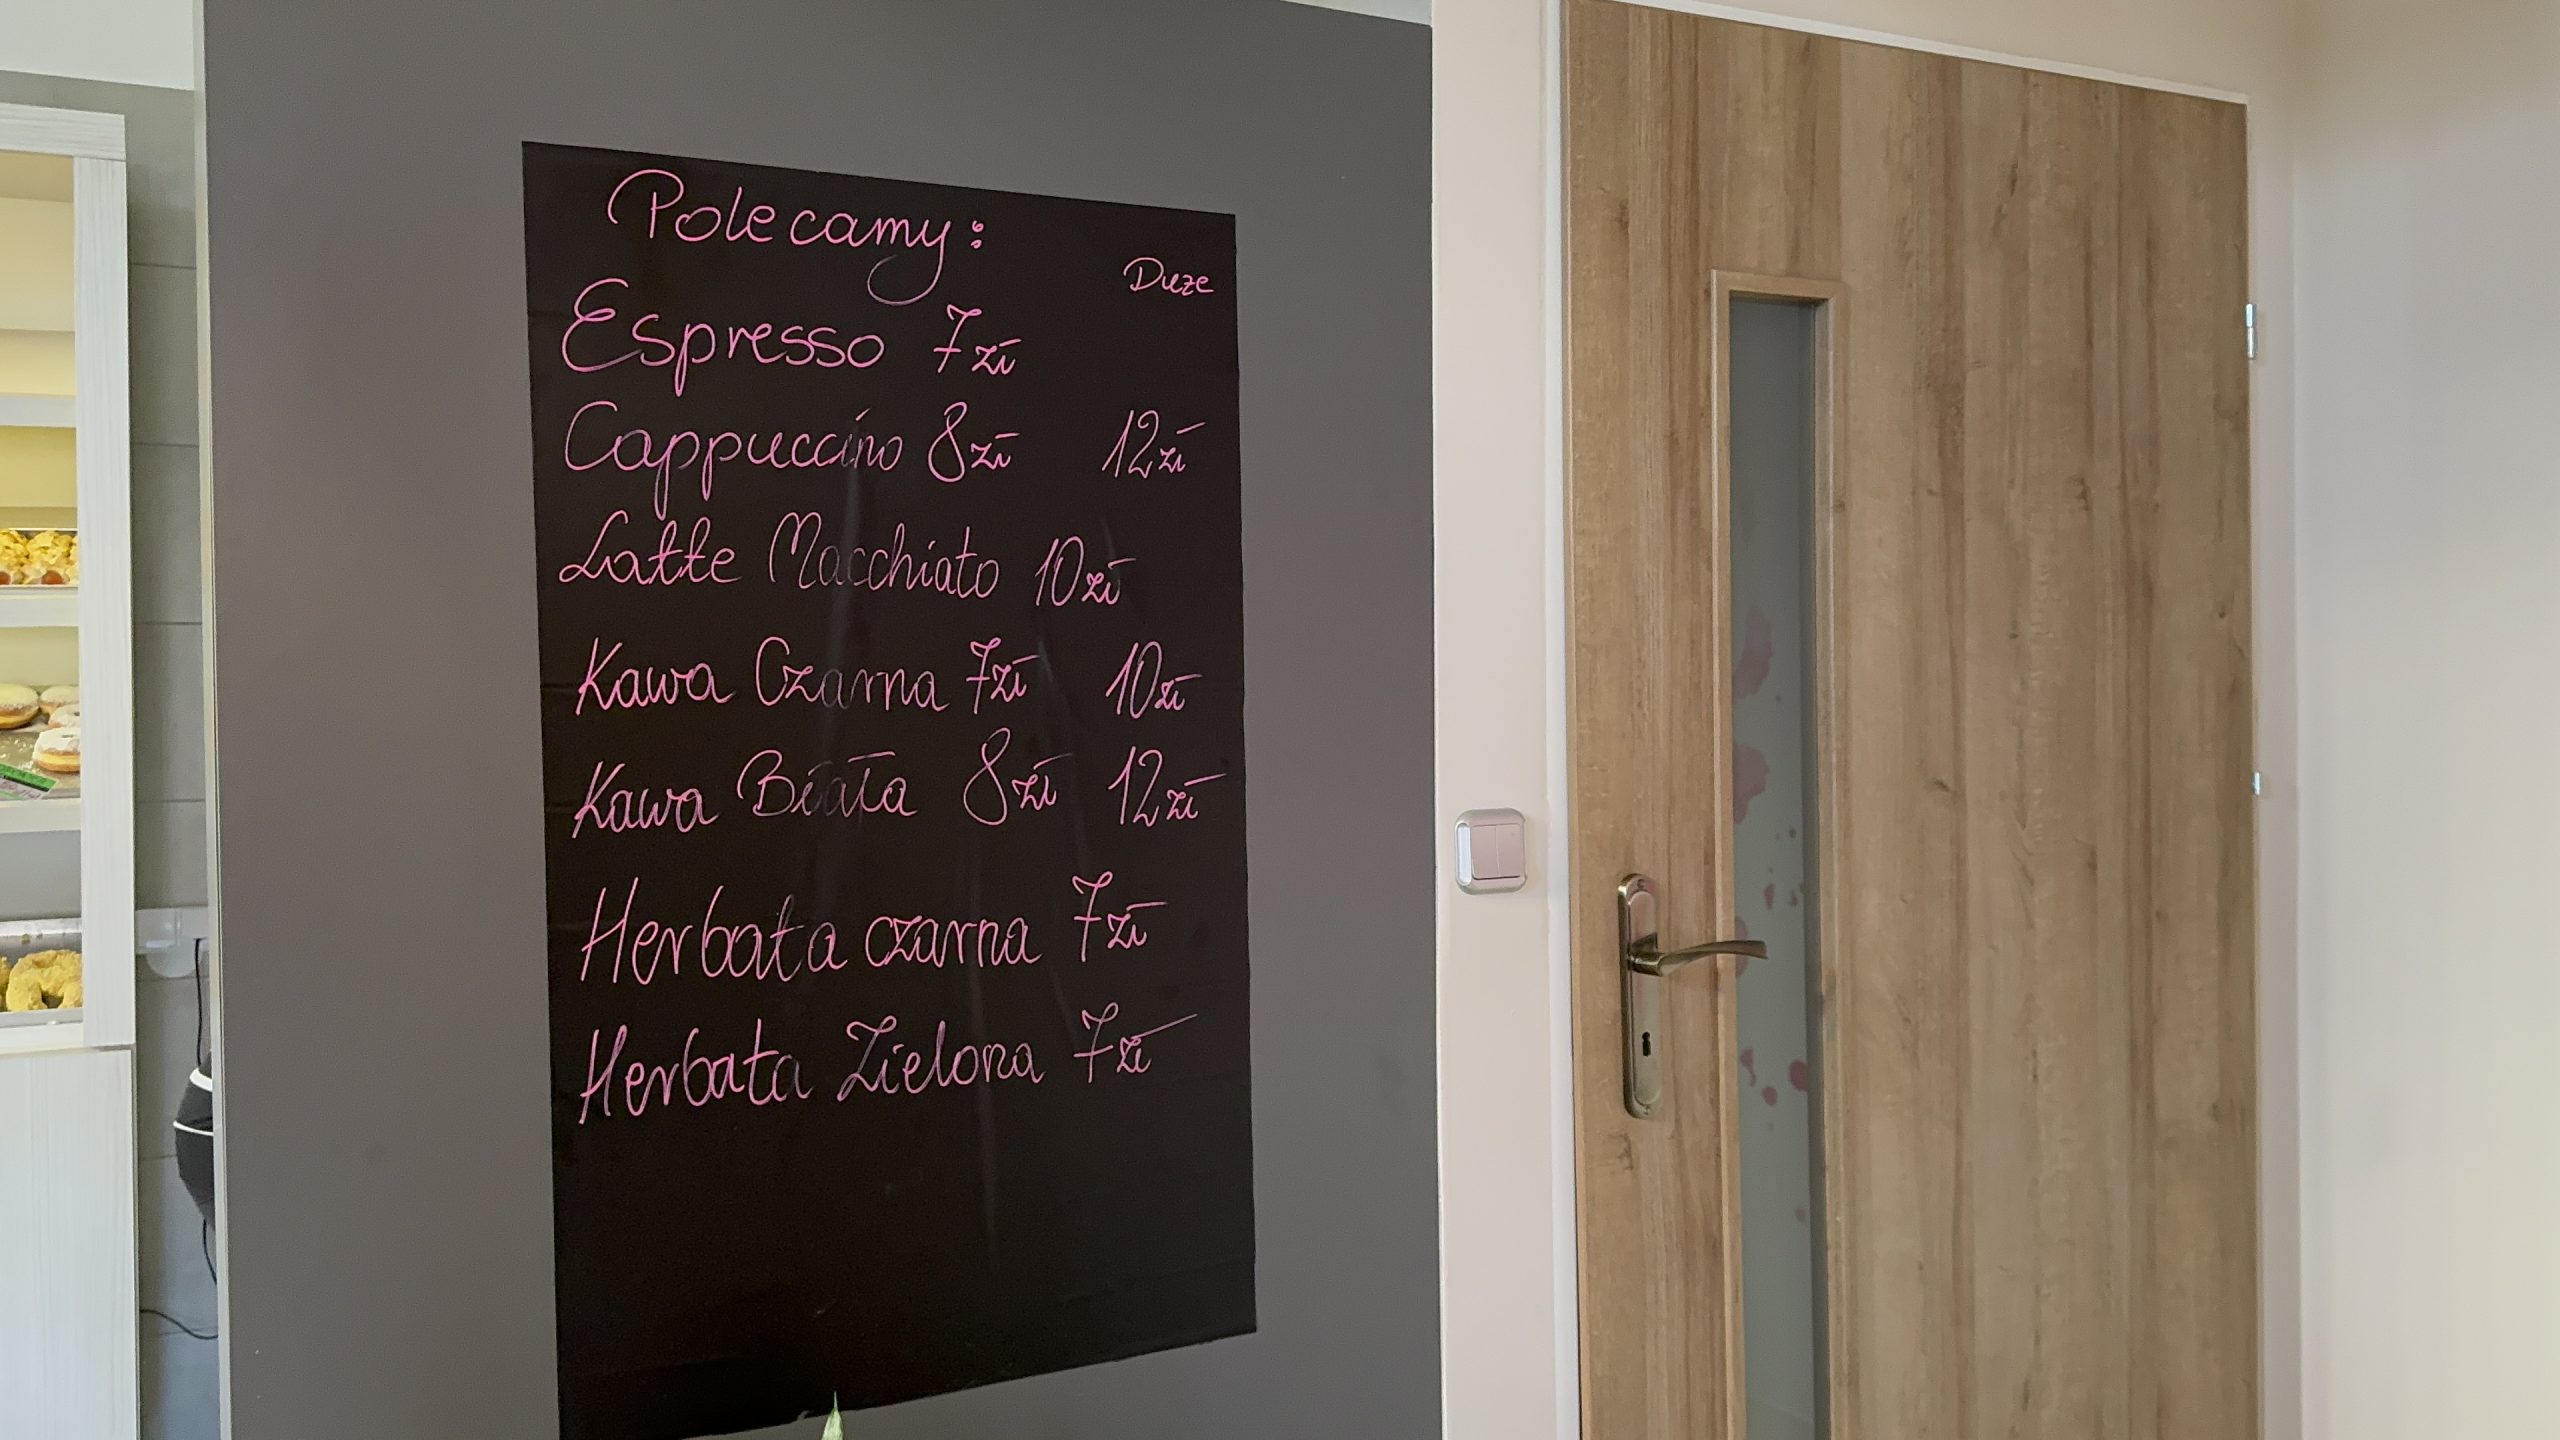 Polecamy:
Duże
Espresso 7zł
Cappuccino 8zł 12zł
Latte Macchiato 10zł
Kawa Czarna 7zł 10zł
Kawa Biała 8zł 12zł
Herbata czarna 7zł
Herbata Zielona 7zł